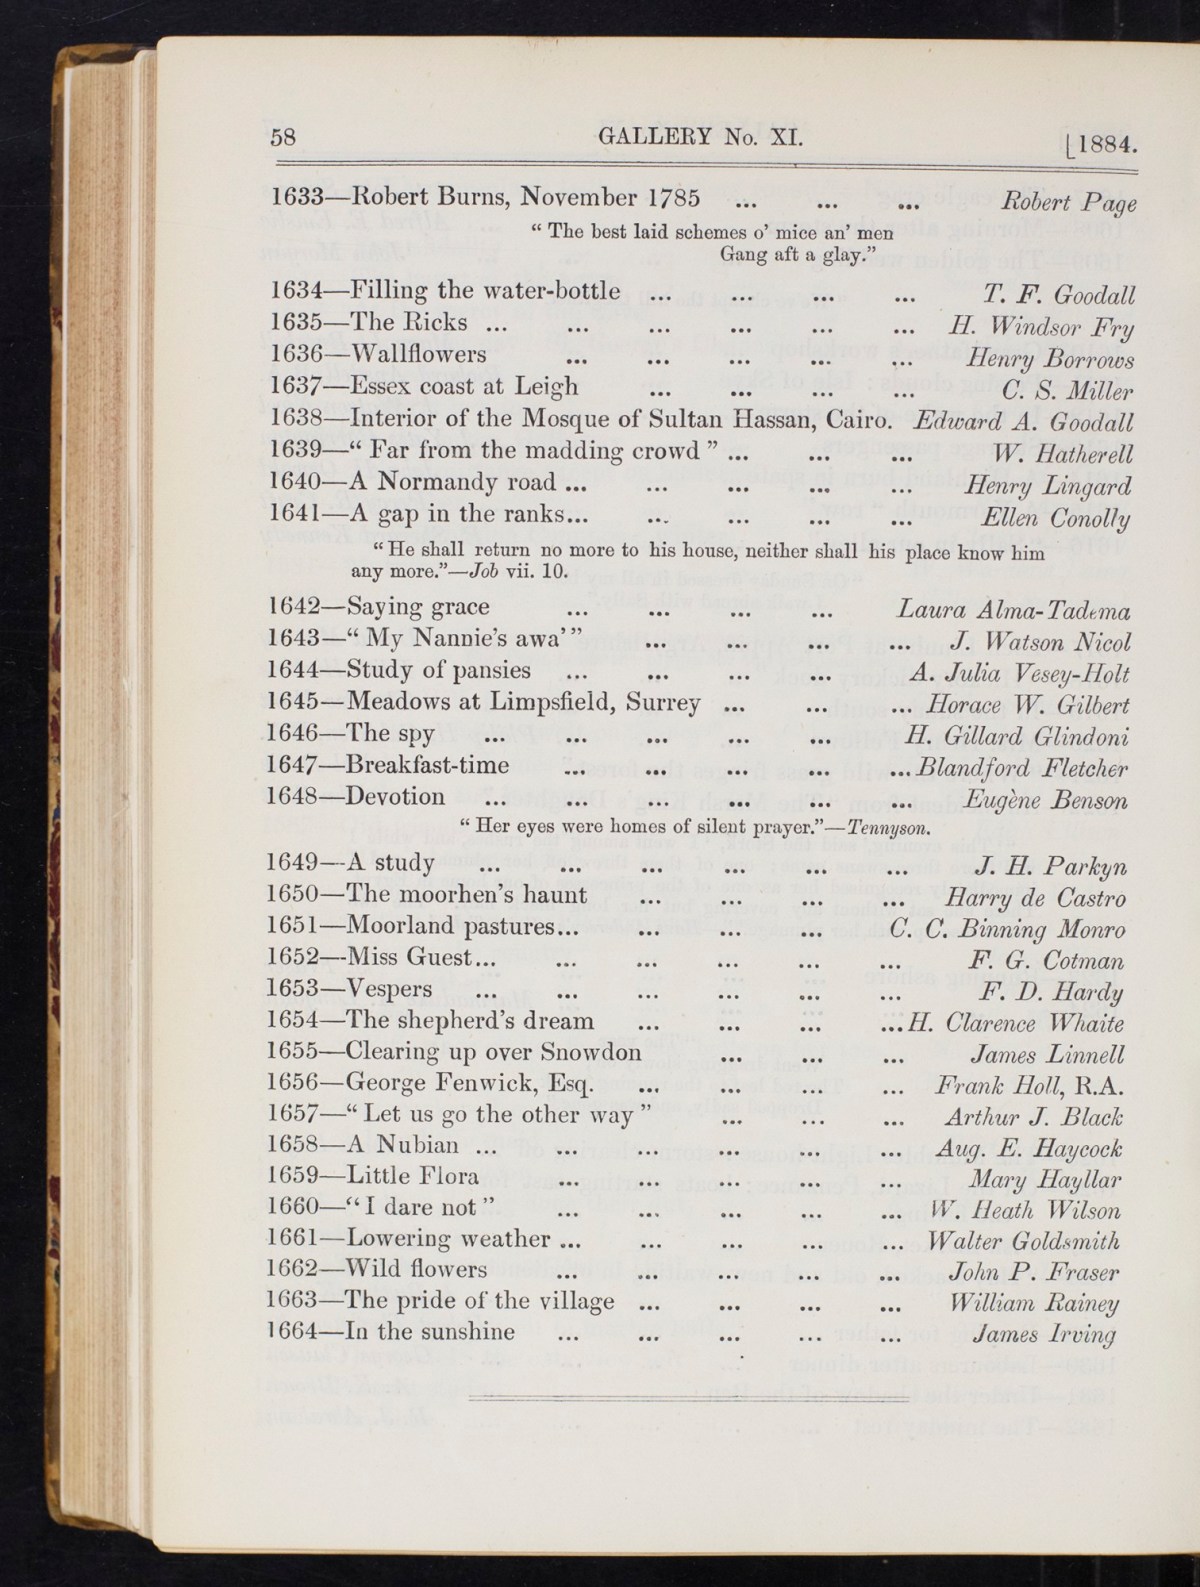 58 GALLERY No. XI. [1884.
1633—Robert Burns, November 1785 ... ... ... Robert Page
“ The best laid schemes o’ mice an’ men
Gang aft a glay.”
1634—Filling the water-bottle ... ... ... ... T. F. Goodall
1635—The Ricks ... ... ... ... ... ... H. Windsor Fry
1636—Wallflowers ... ... ... ... ... Henry Borrows
1637—Essex coast at Leigh ... ... ... ... C. S. Miller
1638—Interior of the Mosque of Sultan Hassan, Cairo. Edward A. Goodall
1639—“ Far from the madding crowd ” ... ... ... W. Hatherell
1640—A Normandy road ... ... ... ... ... Henry Lingard
1641—A gap in the ranks... ... ... ... ... Ellen Conolly
“ He shall return no more to his house, neither shall his place know him
any more.”—Job vii. 10.
1642—Saying grace ... ... ... ... Laura Alma-Tadema
1643—“ My Nannie’s awa’ ” ... ... ... ... J. Watson Nicol
1644—Study of pansies ... ... ... ... A. Julia Vesey-Holt
1645—Meadows at Limpsfield, Surrey ... ... ... Horace W. Gilbert
1646—The spy ... ... ... ... ... H. Gillard Glindoni
1647—Breakfast-time ... ... ... ... ... Blandford Fletcher
1648—Devotion ... ... ... ... ... ... Eugène Benson
“ Her eyes were homes of silent prayer.”—Tennyson.
1649—A study ... ... ... ... ... ... J. H. Parkyn
1650—The moorhen’s haunt ... ... ... ... Harry de Castro
1651—Moorland pastures... ... ... ... C. C. Binning Monro
1652—Miss Guest... ... ... ... ... ... F. G. Cotman
1653—Vespers ... ... ... ... ... ... F. D. Hardy
1654—The shepherd’s dream ... ... ... ... H. Clarence Whaite
1655—Clearing up over Snowdon ... ... ... James Linnell
1656—George Fenwick, Esq. ... ... ... ... Frank Holl, R.A.
1657—“ Let us go the other way ” ... ... ... Arthur J. Black
1658—A Nubian ... ... ... ... ... ... Aug. E. Haycock
1659—Little Flora ... ... ... ... ... Mary Hayllar
1660—“ I dare not ” ... ... ... ... ... W. Heath Wilson
1661—Lowering weather ... ... ... ... ... Walter Goldsmith
1662—Wild flowers ... ... ... ... ... John P. Fraser
1663—The pride of the village ... ... ... ... William Rainey
1664—In the sunshine ... ... ... ... ... James Irving